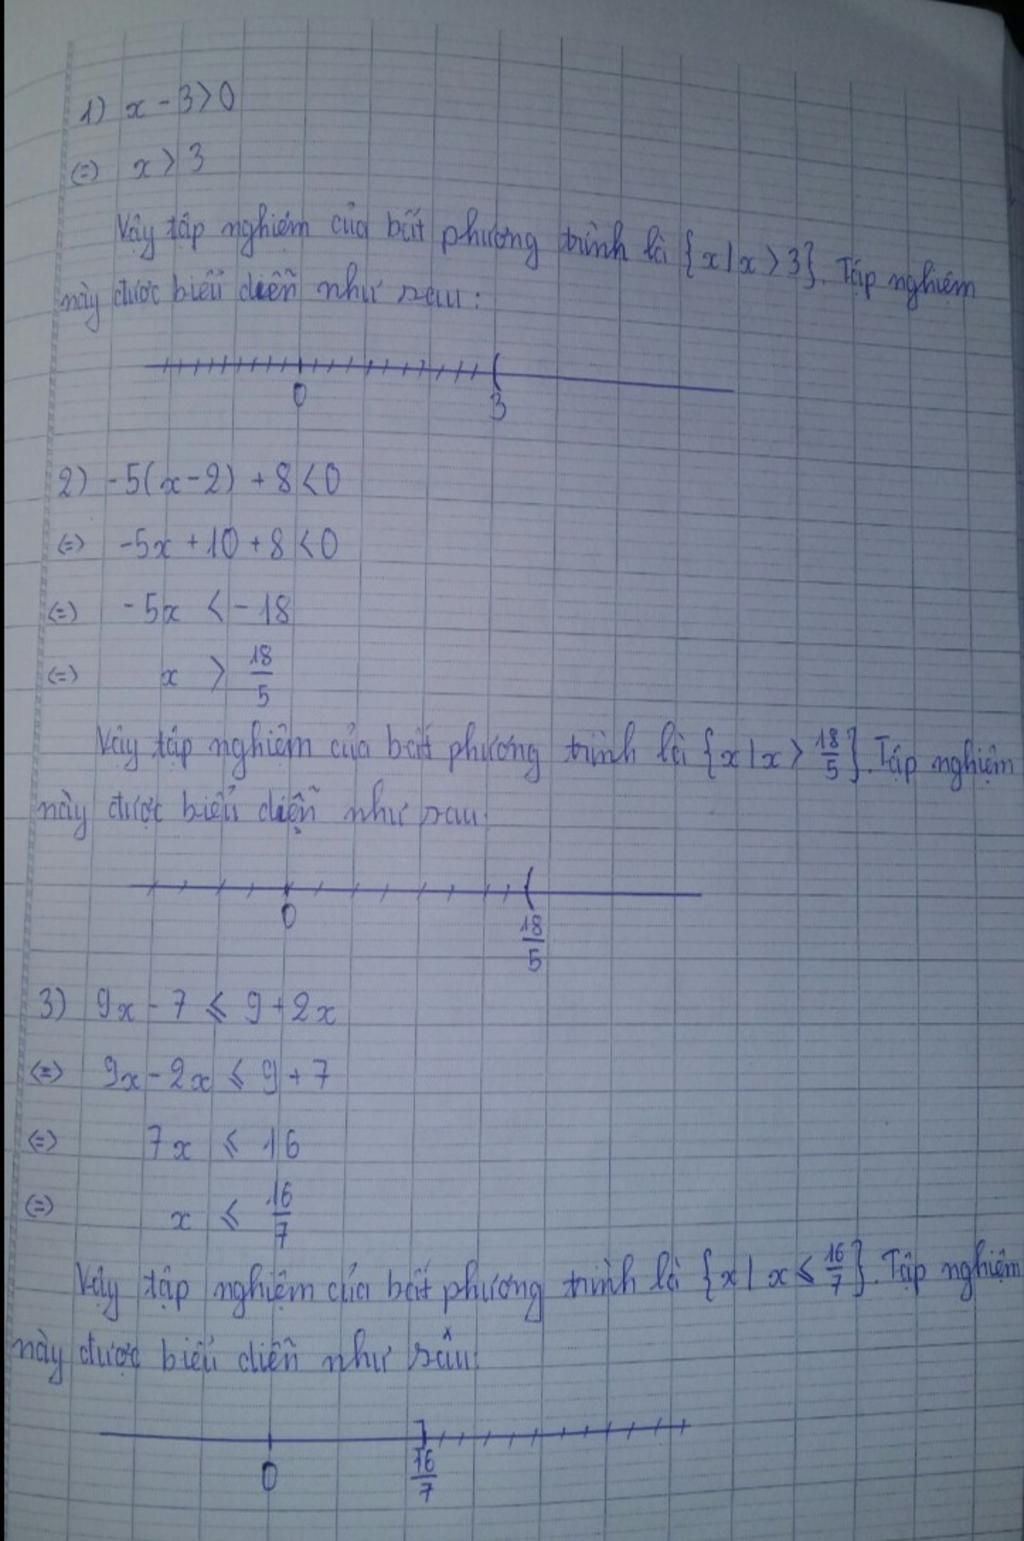 1) x - 3 > 0
(=) x > 3
Vậy tập nghiệm của bất phương trình là {x | x > 3}. Tập nghiệm
này được biểu diễn như sau:
0 3
2) -5(x-2) + 8 < 0
(=) -5x + 10 + 8 < 0
(=) -5x < -18
(=) x > 18/5
Vậy tập nghiệm của bất phương trình là {x | x > 18/5}. Tập nghiệm
này được biểu diễn như sau
0 18/5
3) 9x - 7 ≤ 9 + 2x
(=) 9x - 2x ≤ 9 + 7
(=) 7x ≤ 16
(=) x ≤ 16/7
Vậy tập nghiệm của bất phương trình là {x | x ≤ 16/7}. Tập nghiệm
này được biểu diễn như sau
0 16/7